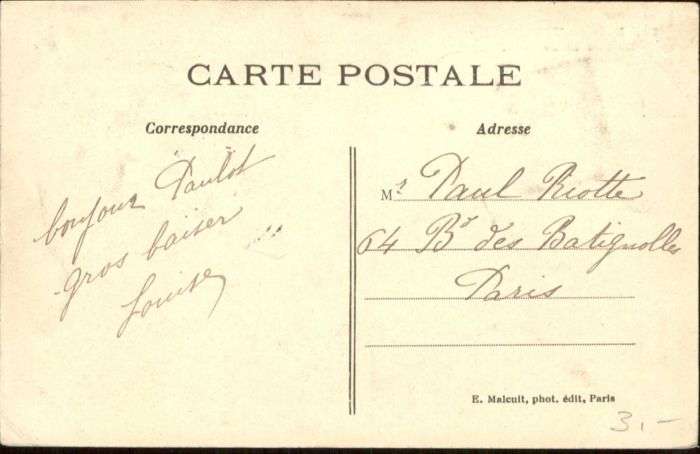 CARTE POSTALE
Correspondance
Adresse
bonjour Paulot
gros baiser
Louise
Mr Paul Riotte
64 Bd des Batignolles
Paris
E. Malcuit, phot. édit, Paris
3.-